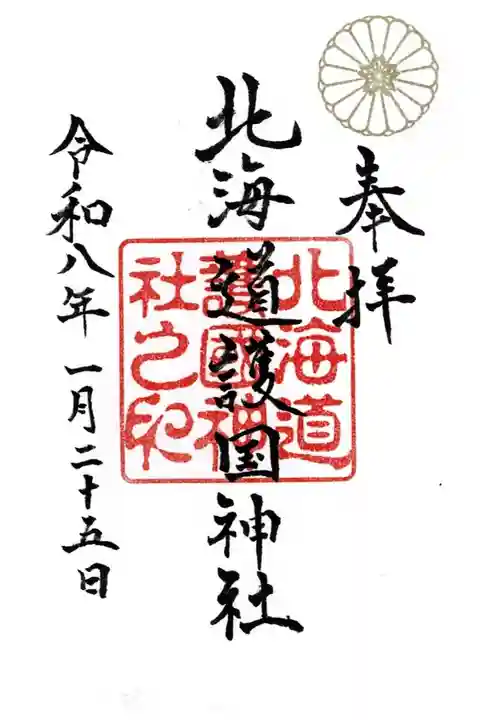 奉拝
北海道護国神社
北海道
護國神
社之印
令和八年一月二十五日